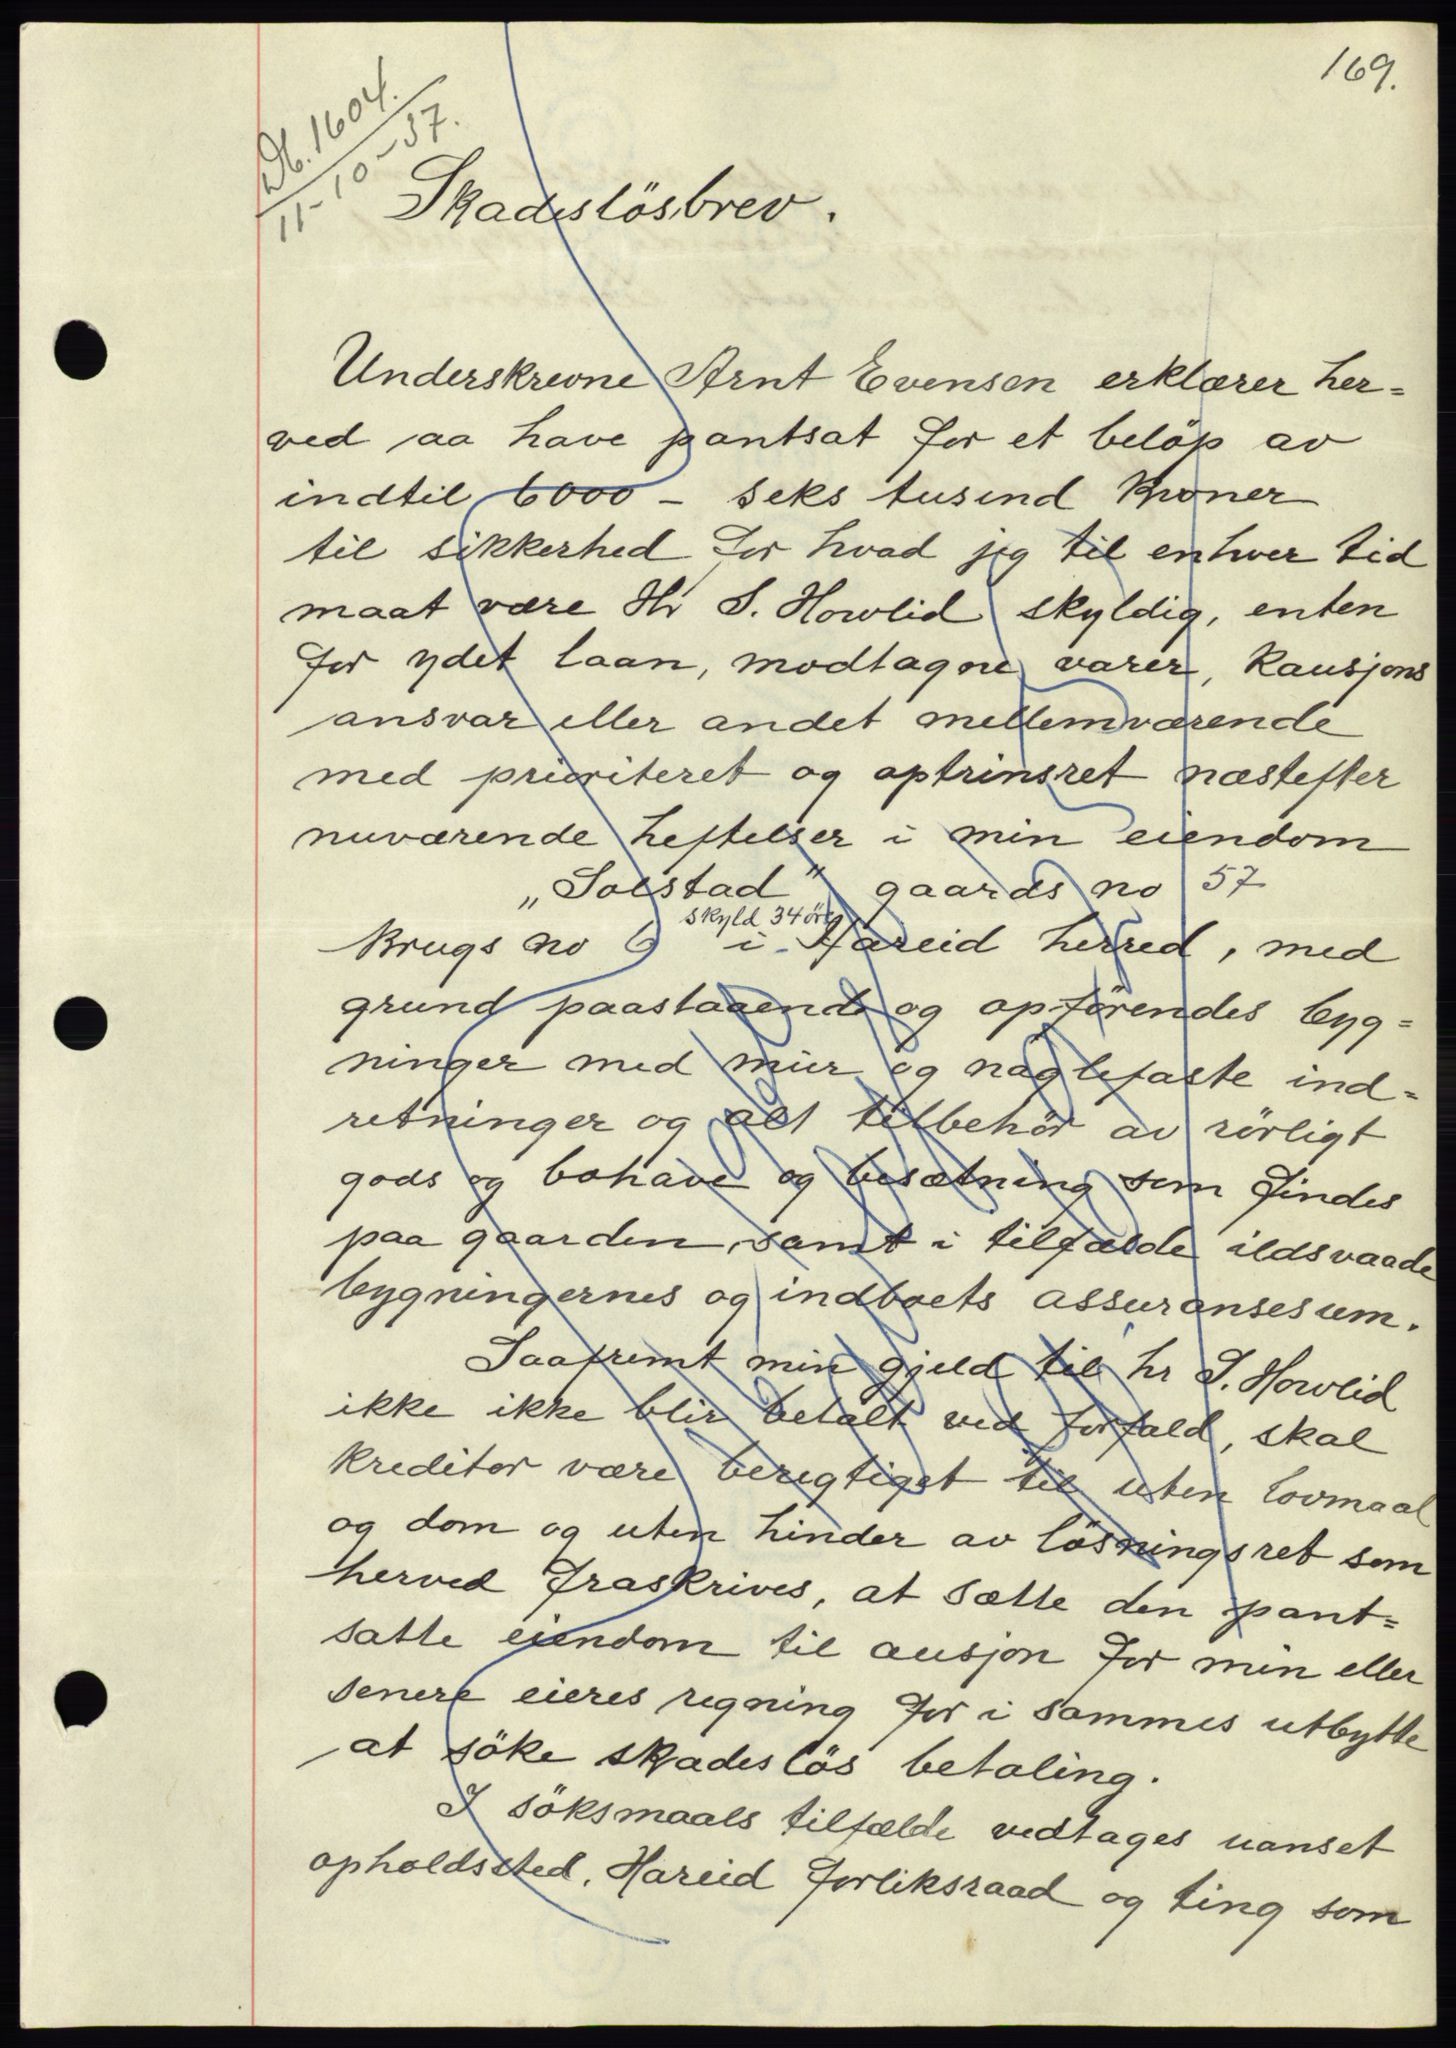 169.
Db. 1604.
11-10-37.
Skadeslösbrev.
Underskrevne Arnt Evensen erklærer her=
ved aa have pantsat for et belöp av
indtil 6000 – seks tusend Kroner
til sikkerhed for hvad jeg til enhver tid
maat være Hr S. Howlid skyldig, enten
for ydet laan, modtagne varer, Kausjons
ansvar eller andet mellemværende
med prioriteret og optrinsret næstefter
nuværende heftelser i min eiendom
„Solstad" gaards no 57
skyld 34 öre
Brugs no 6 i Hareid herred, med
grund paastaaende og opförendes byg=
ninger med mur og naglefaste ind=
retninger og alt tilbehör av rörligt
gods og bohave og besætning som findes
paa gaarden, samt i tilfælde ildsvaade
bygningernes og indboets assuransesum.
Saafremt min gjeld til hr S. Howlid
ikke ikke blir betalt ved forfald, skal
kreditor være beregtiget til uten lovmaal
og dom og uten hinder av lösningsret som
herved fraskrives, at sætte den pant=
satte eiendom til ausjon for min eller
senere eieres regning for i sammes utbytte
at söke skadeslös betaling.
I söksmaals tilfælde vedtages uanset
opholdssted, Hareid forliksraad og ting som